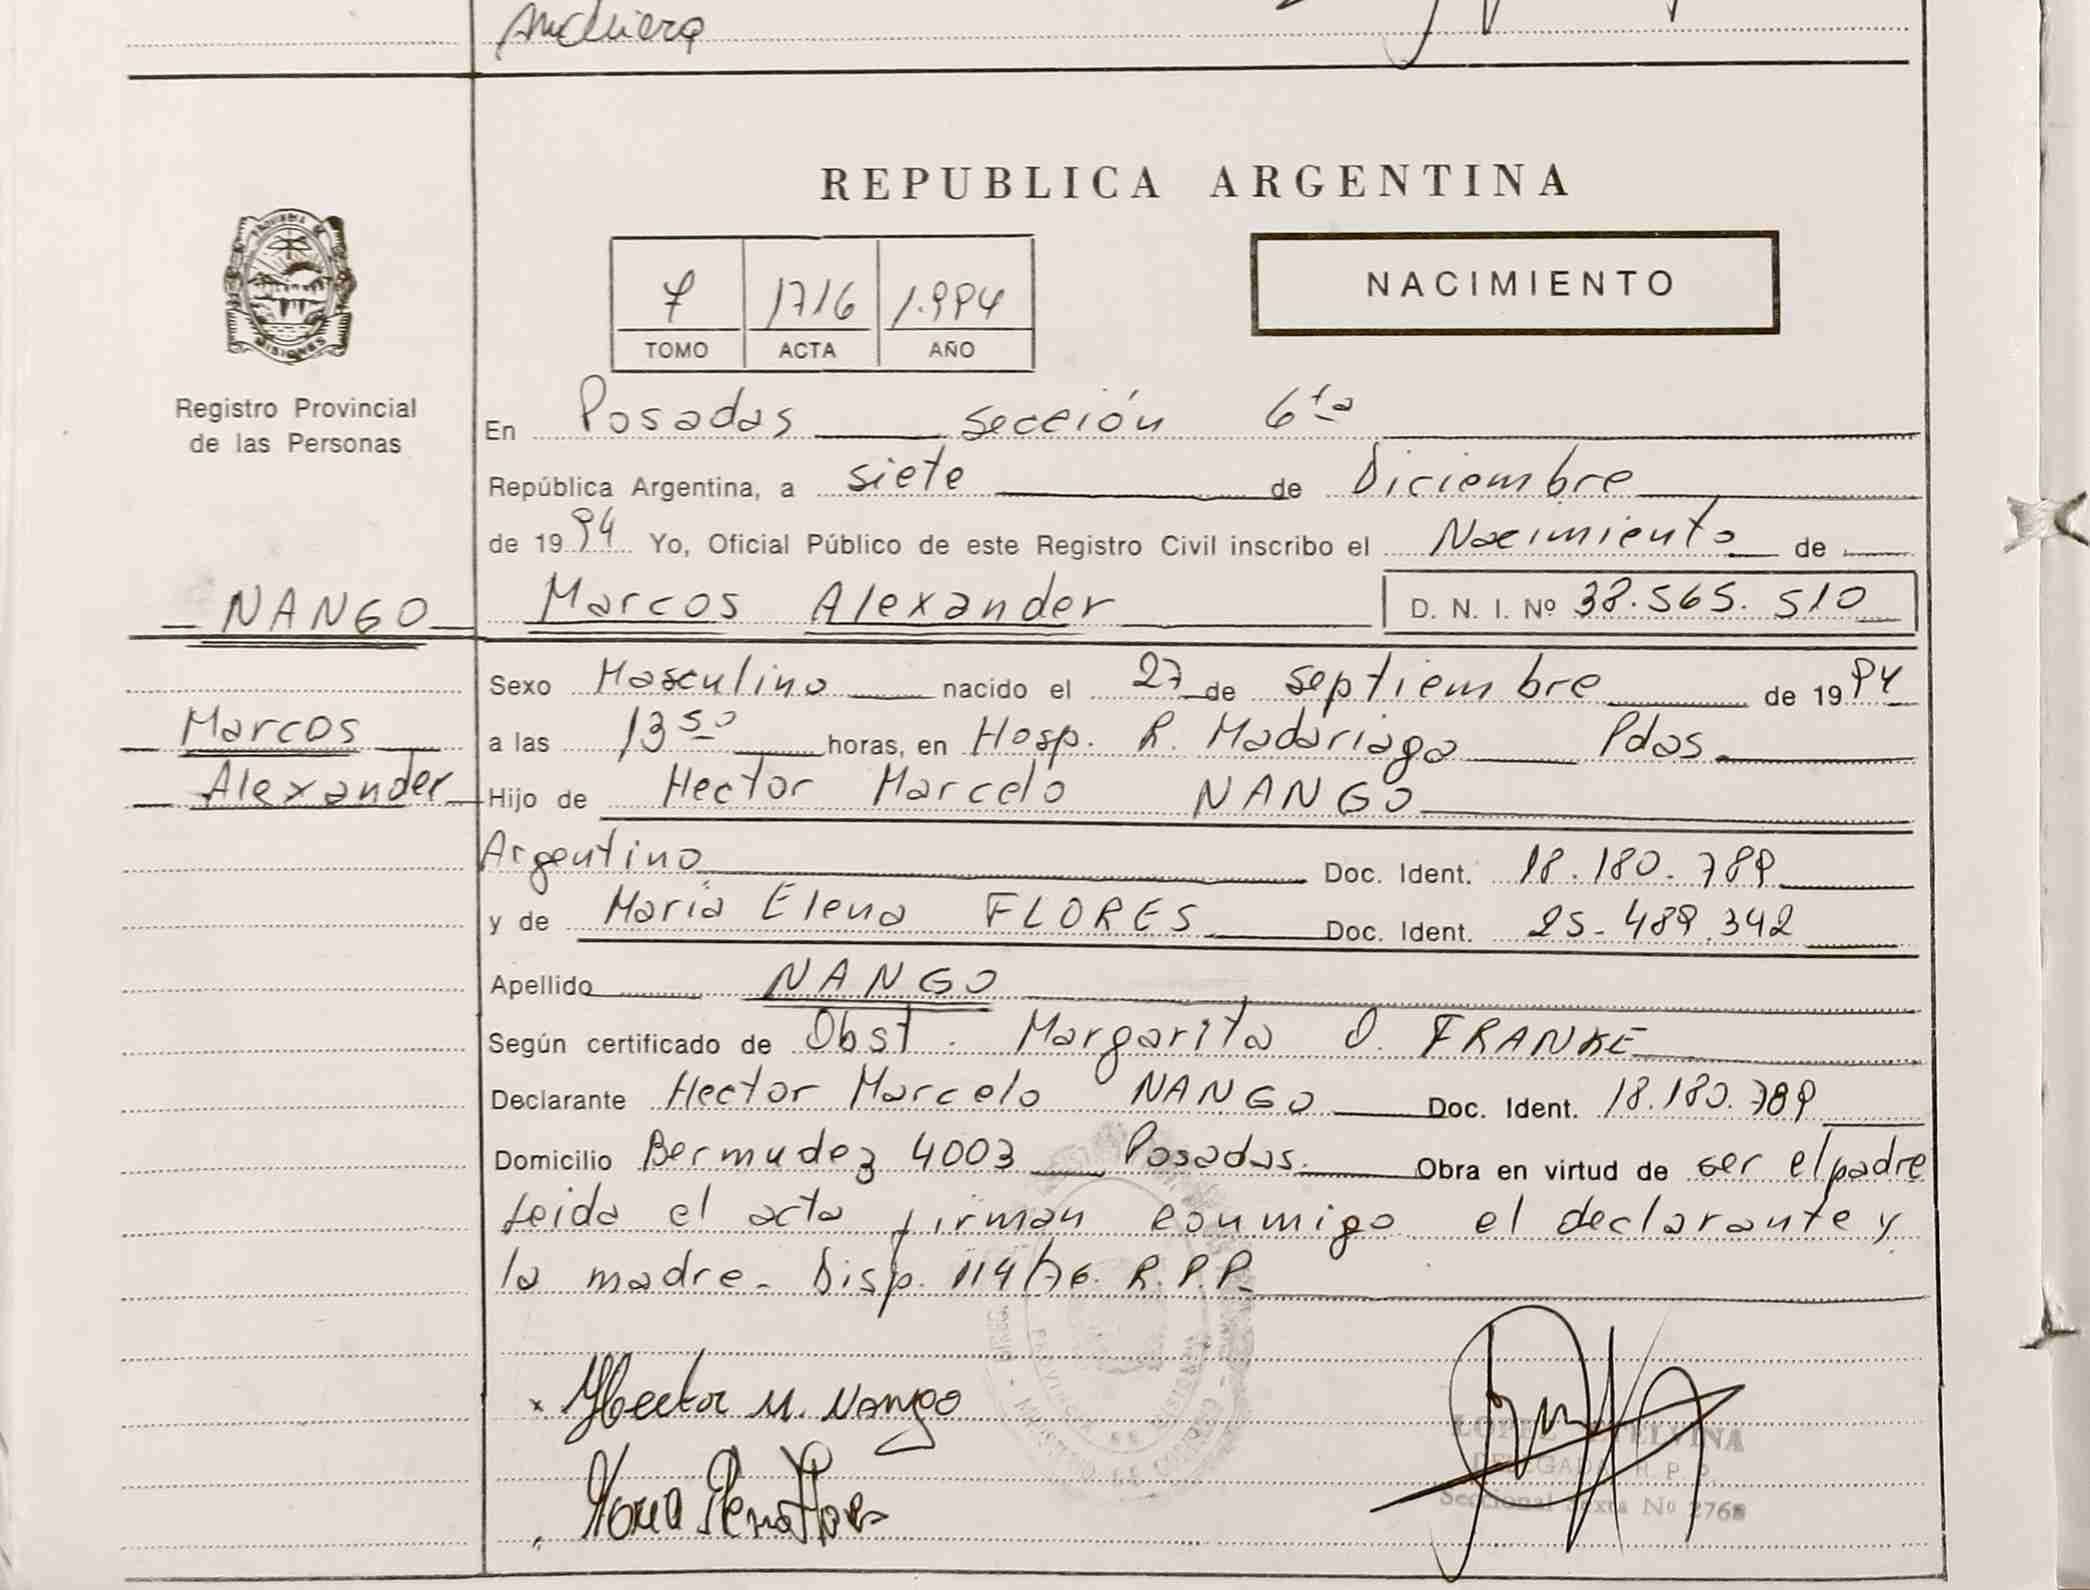 Anchiera
REPUBLICA ARGENTINA
MISIONES
7 1716 1.994
TOMO ACTA AÑO
NACIMIENTO
Registro Provincial
de las Personas
En Posadas sección 6ta
República Argentina, a siete de Diciembre
de 1994 Yo, Oficial Público de este Registro Civil inscribo el Nacimiento de
NANGO Marcos Alexander D. N. I. Nº 38.565.510
Sexo Masculino nacido el 27 de septiembre de 1994
Marcos a las 13 50 horas, en Hosp. R. Madariaga Pdas
Alexander Hijo de Hector Marcelo NANGO
Argentino Doc. Ident. 18.180.789
y de Maria Elena FLORES Doc. Ident. 25.489.342
Apellido NANGO
Según certificado de Obst. Margarita O. FRANKE
Declarante Hector Marcelo NANGO Doc. Ident. 18.180.789
Domicilio Bermudez 4003 Posadas. Obra en virtud de ser el padre
Leida el acta firman conmigo el declarante y
la madre. Disp. 114/76. R.P.P.
x Hector M. Nango
Maria Elena Flores
LOPEZ ETELVINA
DELEGADA R. P. P.
Seccional Sexta Nº 2768